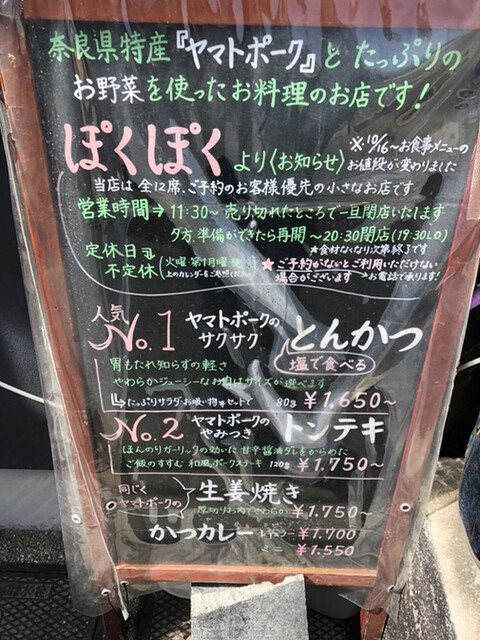 奈良県特産『ヤマトポーク』と たっぷりの
お野菜を使ったお料理のお店です!
ぽくぽく より〈お知らせ〉
※10/16~お食事メニューの
お値段が変わりました
当店は全12席、ご予約のお客様優先の小さなお店です
営業時間→11:30~売り切れたところで一旦閉店いたします
夕方、準備ができたら再開~20:30閉店(19:30LO)
★食材なくなり次第終了です
定休日→
不定休
(火曜・第1月曜
上のカレンダーをご参照ください)
★ご予約がないとご利用いただけない
場合がございます
→お電話で承ります!
人気
No.1 ヤマトポークの
サクサク
とんかつ
塩で食べる
胃もたれ知らずの軽さ
やわらかジューシーなお肉はサイズが選べます
↳たっぷりサラダ・お吸い物セットで 80g ¥1,650~
No.2 ヤマトポークの
やみつき
トンテキ
ほんのりガーリックの効いた 甘辛醤油ダレをからめた
ご飯のすすむ 和風ポークステキ 120g ¥1,750~
同じく
ヤマトポークの
生姜焼き
厚切りお肉でやわらか ¥1,750~
かつカレー レギュラー ¥1,700
ミニ ¥1,550